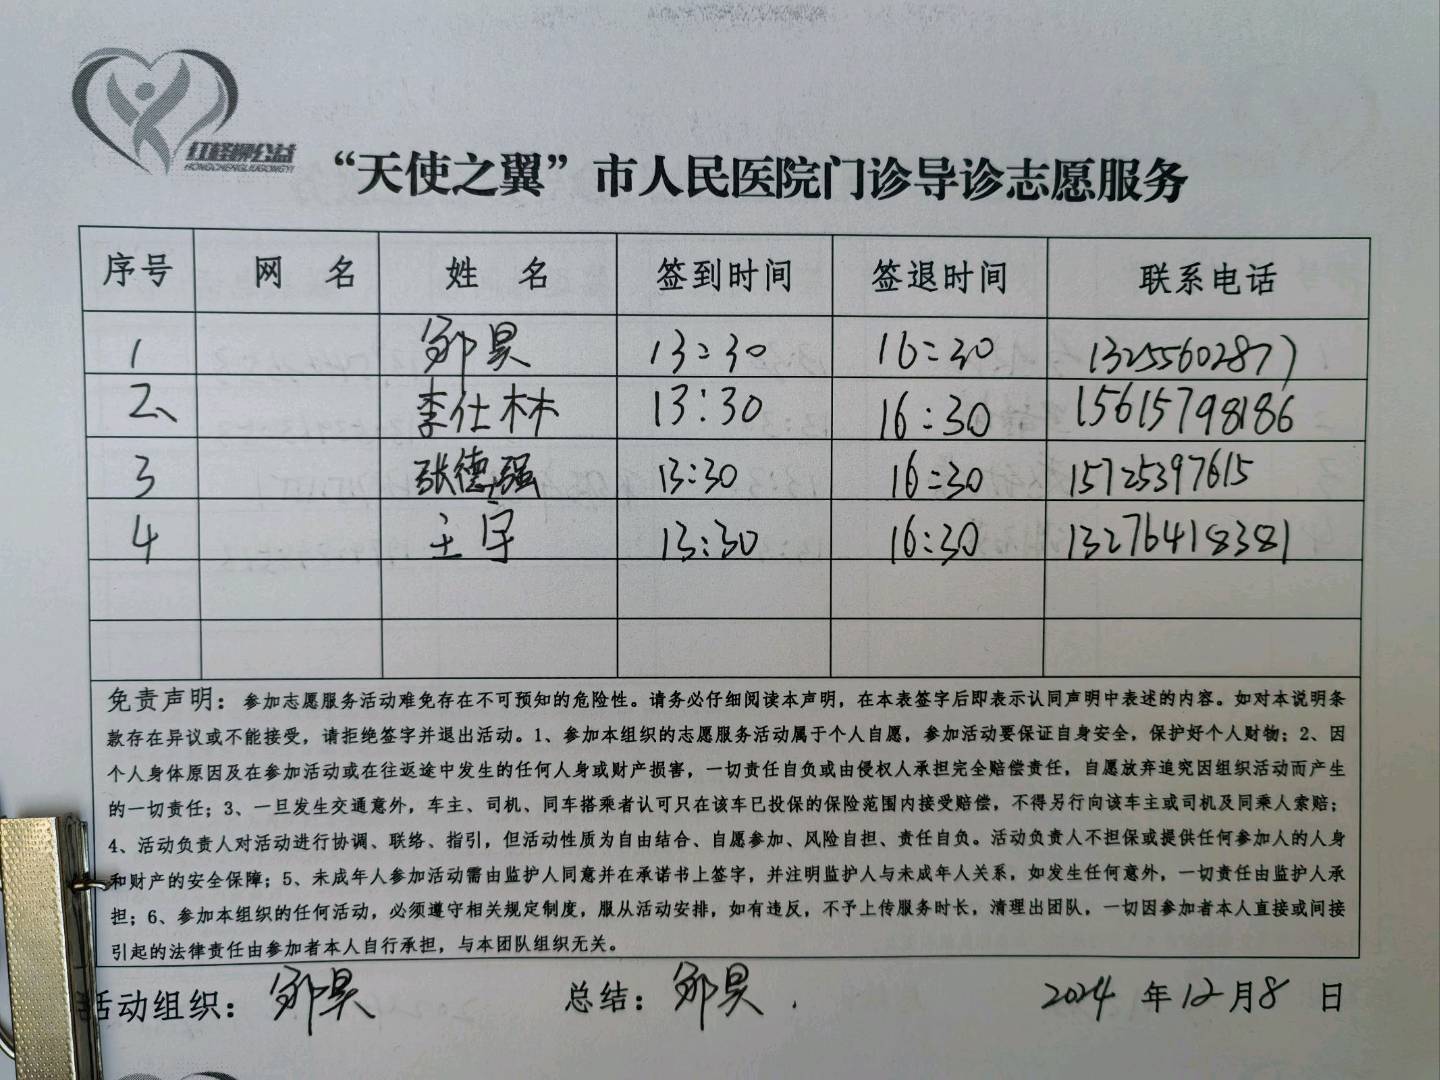 红柽柳公益
HONGCHENGLIUGONGYI
“天使之翼”市人民医院门诊导诊志愿服务
序号 网 名 姓 名 签到时间 签退时间 联系电话
1 邹昊 13:30 16:30 13255602877
2、 李仕林 13:30 16:30 15615798186
3 张德强 13:30 16:30 15725397615
4 王宇 13:30 16:30 13276418381
免责声明：参加志愿服务活动难免存在不可预知的危险性。请务必仔细阅读本声明，在本表签字后即表示认同声明中表述的内容。如对本说明条
款存在异议或不能接受，请拒绝签字并退出活动。1、参加本组织的志愿服务活动属于个人自愿，参加活动要保证自身安全，保护好个人财物；2、因
个人身体原因及在参加活动或在往返途中发生的任何人身或财产损害，一切责任自负或由侵权人承担完全赔偿责任，自愿放弃追究因组织活动而产生
的一切责任；3、一旦发生交通意外，车主、司机、同车搭乘者认可只在该车已投保的保险范围内接受赔偿，不得另行向该车主或司机及同乘人索赔；
4、活动负责人对活动进行协调、联络、指引，但活动性质为自由结合、自愿参加、风险自担、责任自负。活动负责人不担保或提供任何参加人的人身
和财产的安全保障；5、未成年人参加活动需由监护人同意并在承诺书上签字，并注明监护人与未成年人关系，如发生任何意外，一切责任由监护人承
担；6、参加本组织的任何活动，必须遵守相关规定制度，服从活动安排，如有违反，不予上传服务时长，清理出团队，一切因参加者本人直接或间接
引起的法律责任由参加者本人自行承担，与本团队组织无关。
活动组织：邹昊 总结：邹昊. 2024 年 12 月 8 日